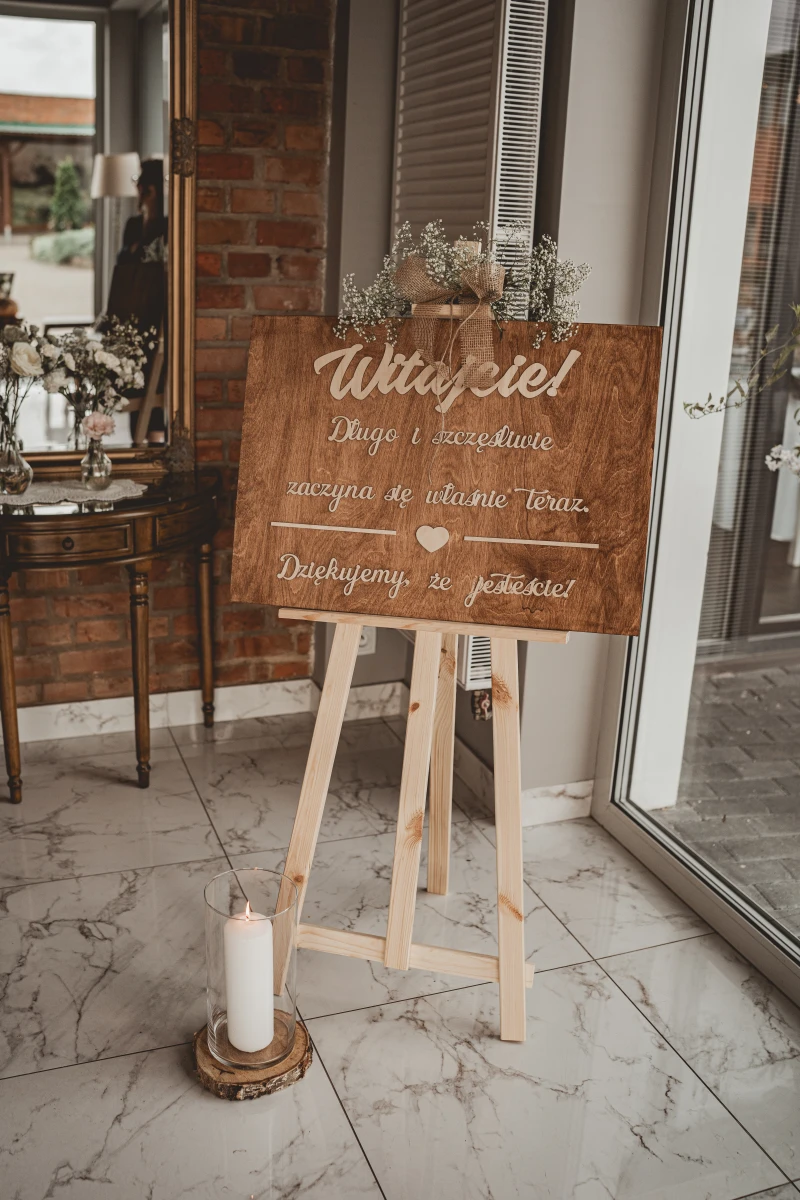 Witajcie!
Długo i szczęśliwie
zaczyna się właśnie Teraz.
Dziękujemy, że jesteście!